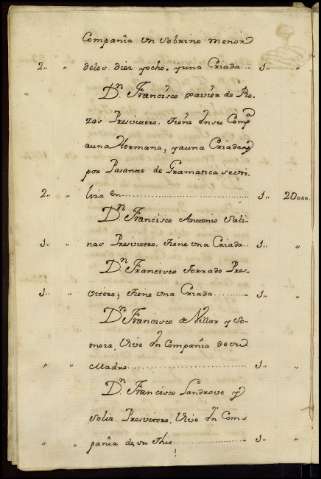 Compañia un Sobrino menor
2 " delos diez yocho, yuna Criada .. 1.. "
Dn. Francisco xavier de
zas Presvitero, tiene en su Compa
auna Hermana, yauna Criada, y
por Pasante de Gramatica
2 " en .......... 1.. 20
Dn. Francisco Antonio Sali
1.. " nas Presvitero, tiene una Criada 1.. "
Dn. Francisco Serrado Pres
1.. " vitero, tiene una Criada ....... 1.. "
Dn. Francisco de Villar y Se
Vive en Compañia de su
" " Madre .......... 1.. "
Dn. Francisco Sandrove y
Solis Presvitero, Vive en Com
" " pañia de su thio ........ 1.. "